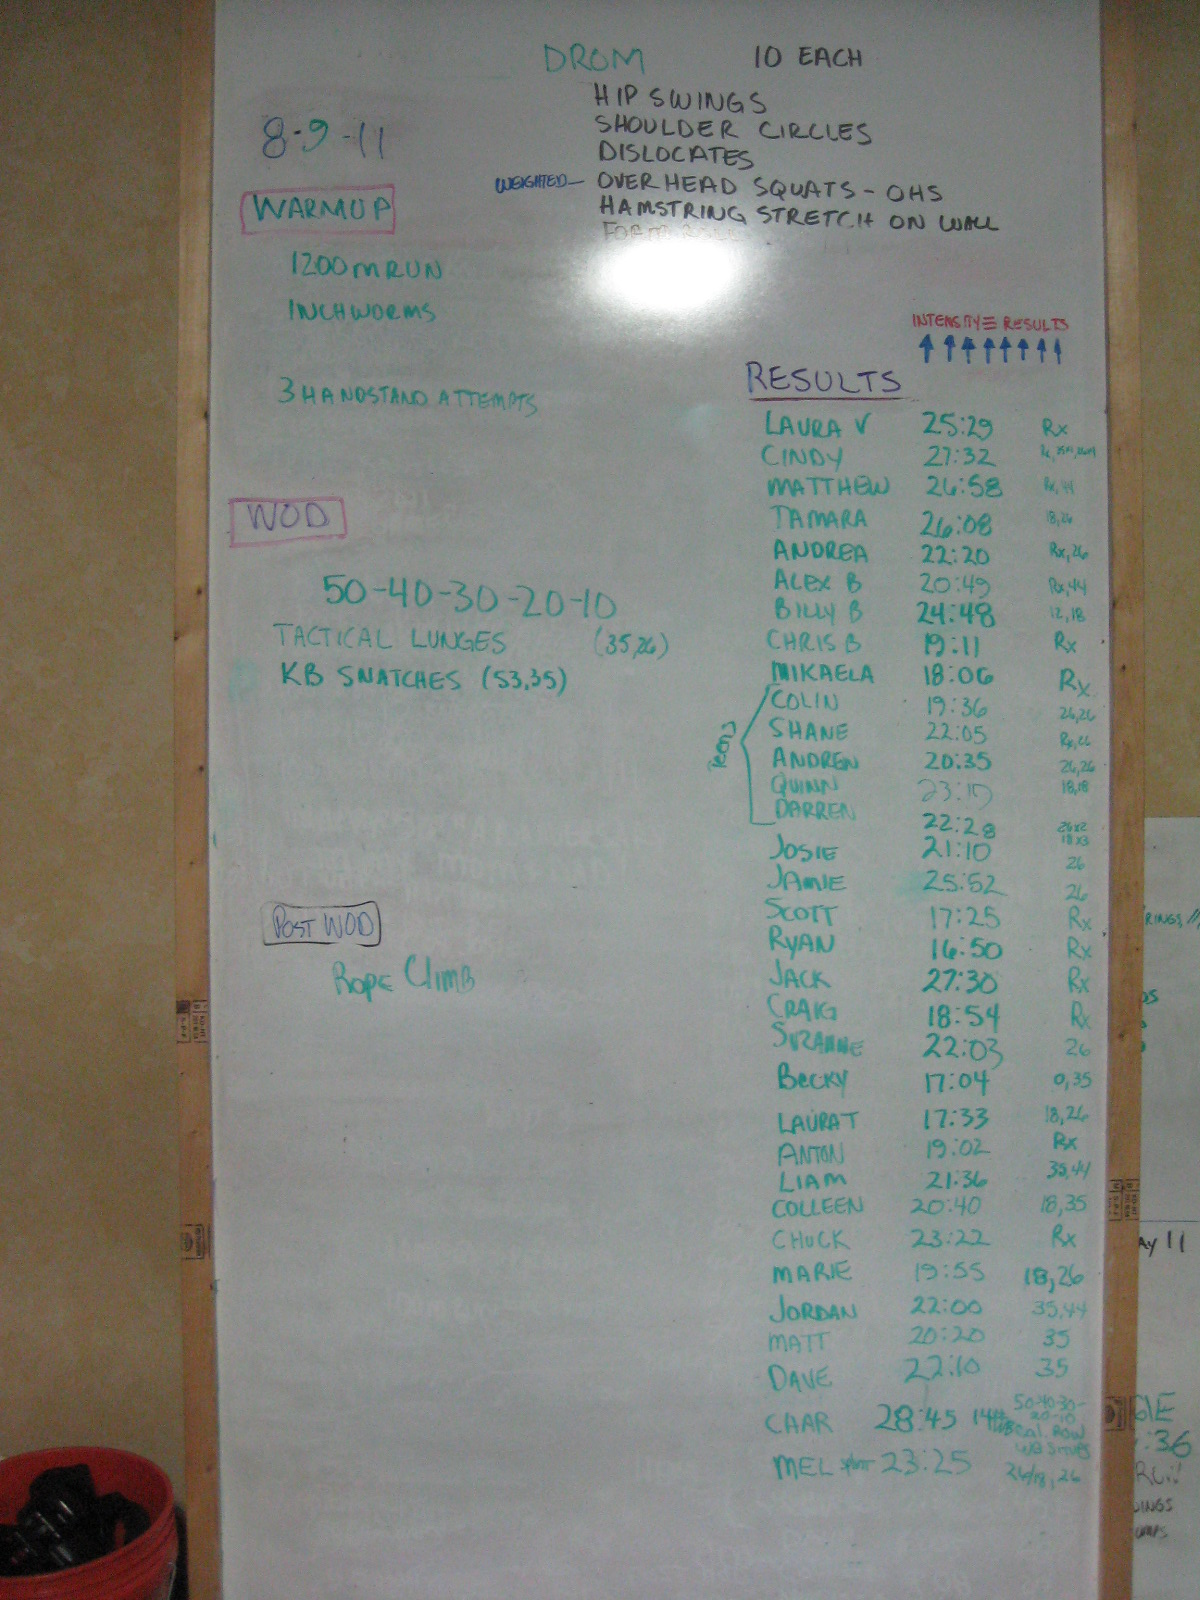 DROM 10 EACH
HIP SWINGS
SHOULDER CIRCLES
DISLOCATES
WEIGHTED - OVERHEAD SQUATS - OHS
HAMSTRING STRETCH ON WALL
8-9-11
WARMUP
1200m RUN
INCHWORMS
3 HANDSTAND ATTEMPTS
WOD
50-40-30-20-10
TACTICAL LUNGES (35,26)
KB SNATCHES (53,35)
POST WOD
Rope Climb
INTENSITY = RESULTS
RESULTS
LAURA V 25:29 Rx
CINDY 27:32
MATTHEW 26:58 Rx, 44
TAMARA 26:08 18,26
ANDREA 22:20 Rx, 26
ALEX B 20:49 Rx, 44
BILLY B 24:48 12,18
CHRIS B 19:11 Rx
MIKAELA 18:06 Rx
COLIN 19:36 26,26
SHANE 22:05 Rx, 26
ANDREN 20:35 26,26
QUINN 18,18
DARREN 22:28 26x2 18x3
JOSIE 21:10 26
JAMIE 25:52 26
SCOTT 17:25 Rx
RYAN 16:50 Rx
JACK 27:30 Rx
CRAIG 18:54 Rx
SUZANNE 22:03 26
BECKY 17:04 0,35
LAURA T 17:33 18,26
ANTON 19:02 Rx
LIAM 21:36 35,44
COLLEEN 20:40 18,35
CHUCK 23:22 Rx
MARIE 19:55 18,26
JORDAN 22:00 35,44
MATT 20:20 35
DAVE 22:10 35
CAAR 28:45 14# 50-40-30-20-10 Cal. ROW
MEL 23:25 26/18, 26
RINGS
AY 11
:36